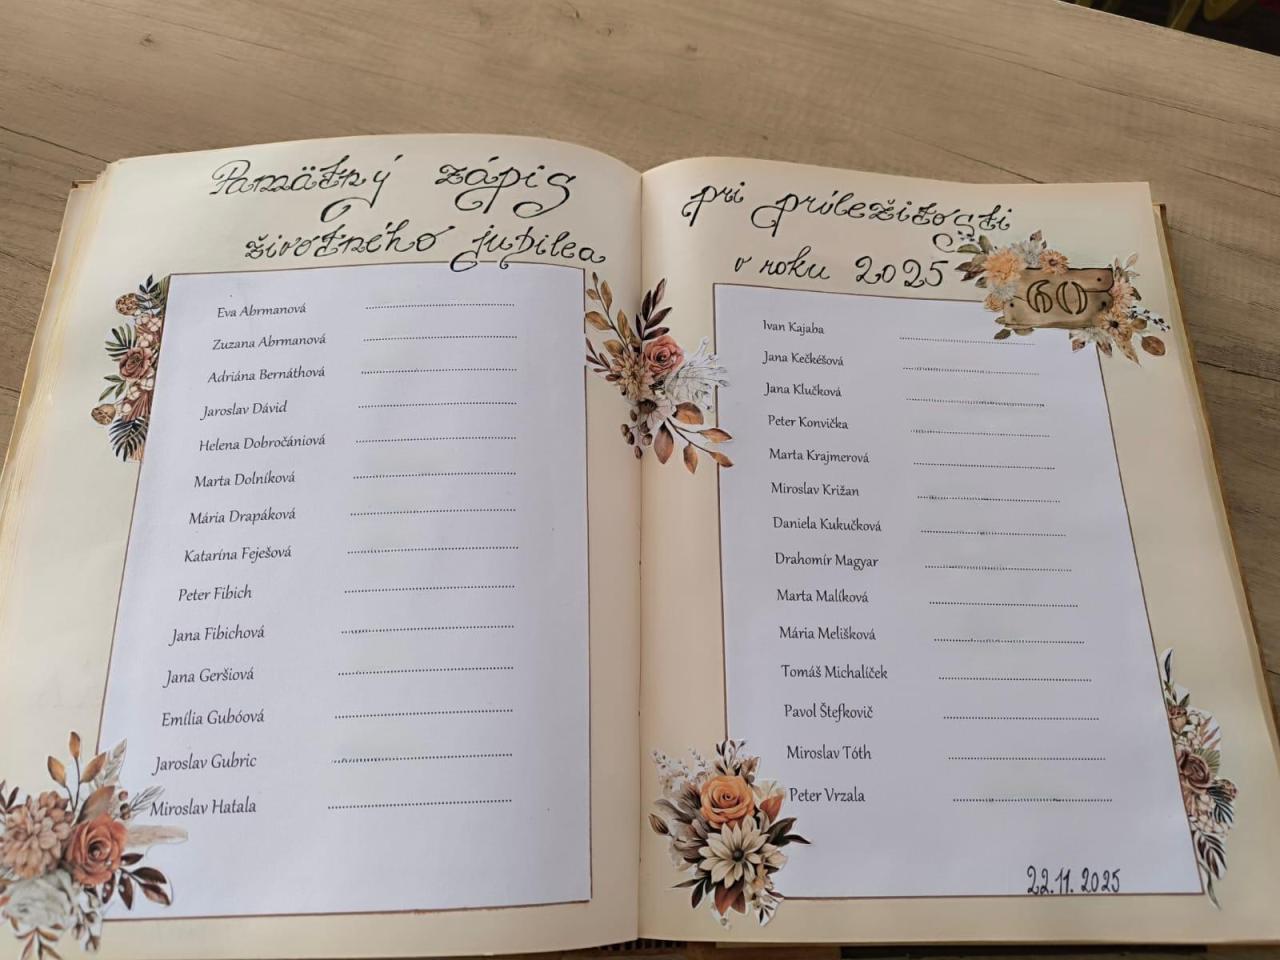 Pamätný zápis
životného jubilea
Eva Abrmanová
Zuzana Abrmanová
Adriána Bernáthová
Jaroslav Dávid
Helena Dobročániová
Marta Dolníková
Mária Drapáková
Katarína Feješová
Peter Fibich
Jana Fibichová
Jana Geršiová
Emília Gubóová
Jaroslav Gubric
Miroslav Hatala
pri príležitosti
v roku 2025
60
Ivan Kajaba
Jana Kečkéšová
Jana Klučková
Peter Konvička
Marta Krajmerová
Miroslav Križan
Daniela Kukučková
Drahomír Magyar
Marta Malíková
Mária Melišková
Tomáš Michalíček
Pavol Štefkovič
Miroslav Tóth
Peter Vrzala
22.11.2025